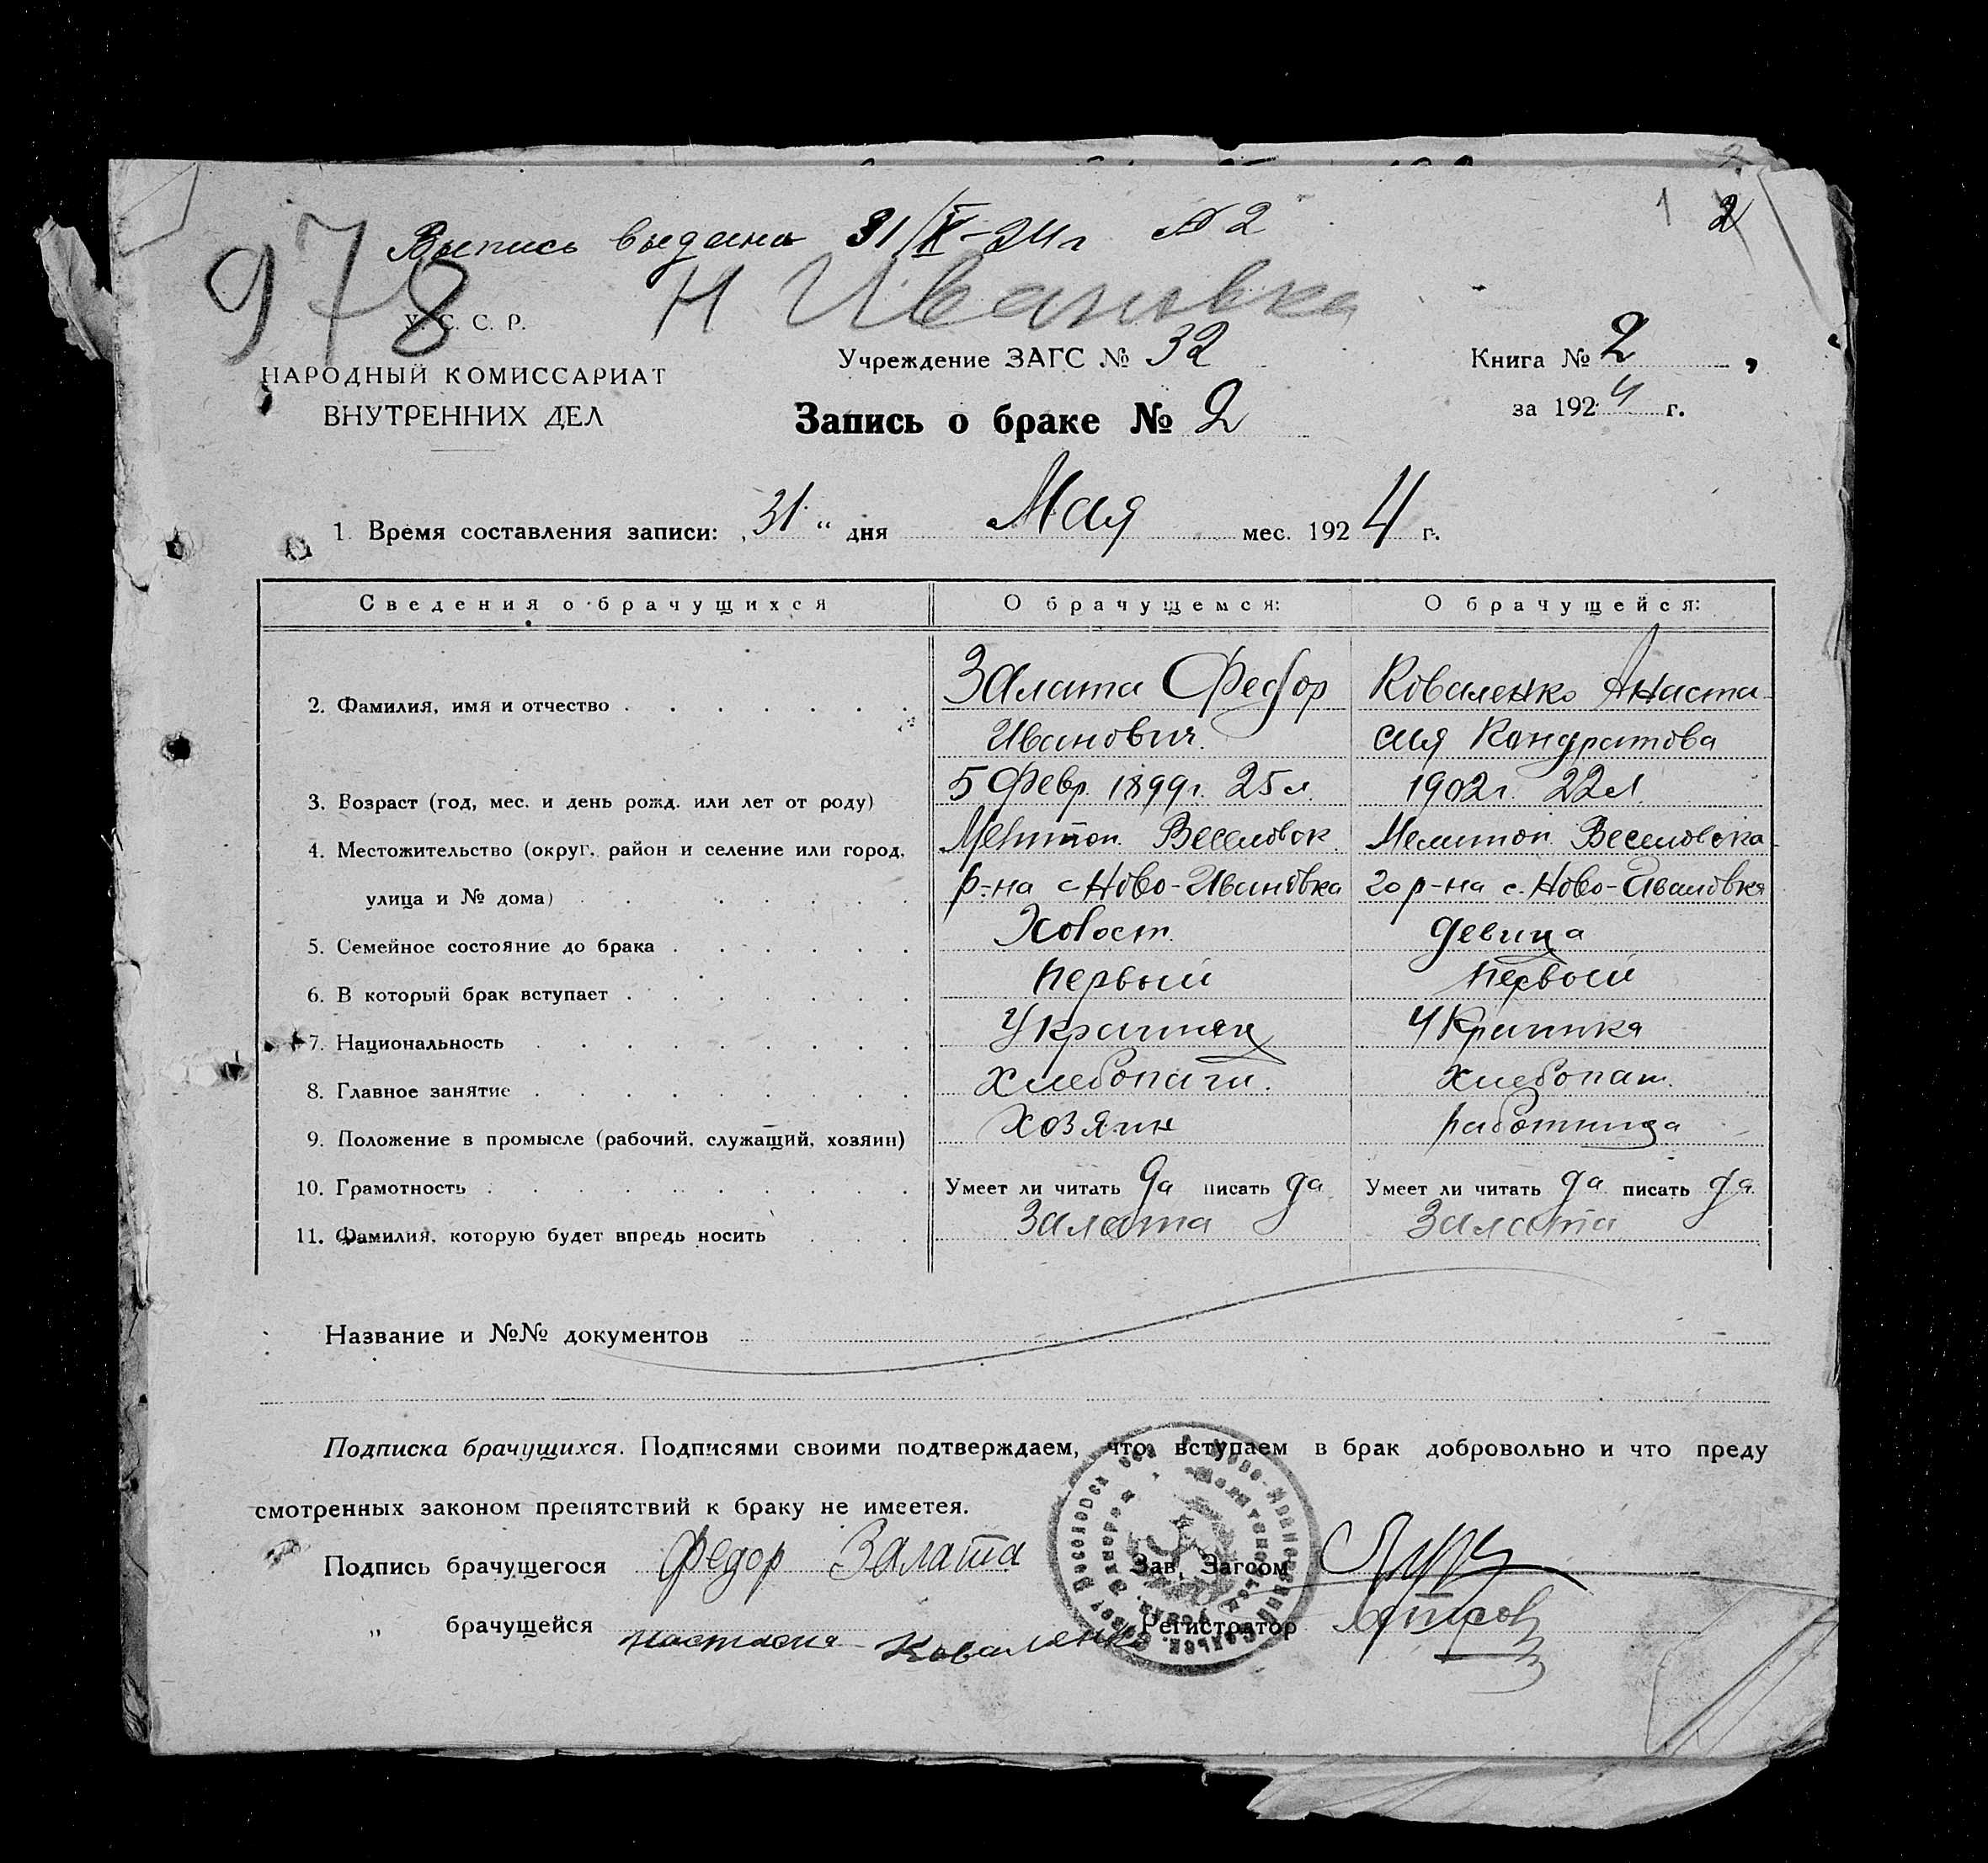 1 2
Выпись выдана 31/V-24г №2
978
Н Ивановка
У. С. С. Р.
НАРОДНЫЙ КОМИССАРИАТ
ВНУТРЕННИХ ДЕЛ
Учреждение ЗАГС № 32
Книга № 2
Запись о браке № 2
за 1924 г.
1. Время составления записи: „31“ дня Мая мес. 1924 г.
Сведения о брачущихся О брачущемся: О брачущейся:
2. Фамилия, имя и отчество Залата Федор Коваленко Анаста-
Иванович. сия Кондратова
3. Возраст (год, мес. и день рожд. или лет от роду) 5 Февр. 1899г. 25 л. 1902г. 22 л.
4. Местожительство (округ, район и селение или город, Мелитоп. Веселовск. Мелитоп. Веселовска-
улица и № дома) р-на с Ново-Ивановка го р-на с. Ново-Ивановка
5. Семейное состояние до брака Холост. девица
6. В который брак вступает первый первый
7. Национальность Украинец Украинка
8. Главное занятие хлебопаш. хлебопаш.
9. Положение в промысле (рабочий, служащий, хозяин) хозяин работница
10. Грамотность Умеет ли читать да писать да Умеет ли читать да писать да
11. Фамилия, которую будет впредь носить Залата Залата
Название и №№ документов
Подписка брачущихся. Подписями своими подтверждаем, что вступаем в брак добровольно и что преду
смотренных законом препятствий к браку не имеетея.
Подпись брачущегося Федор Залата Зав. Загсом
„ брачущейся настасия Коваленко Регистратор